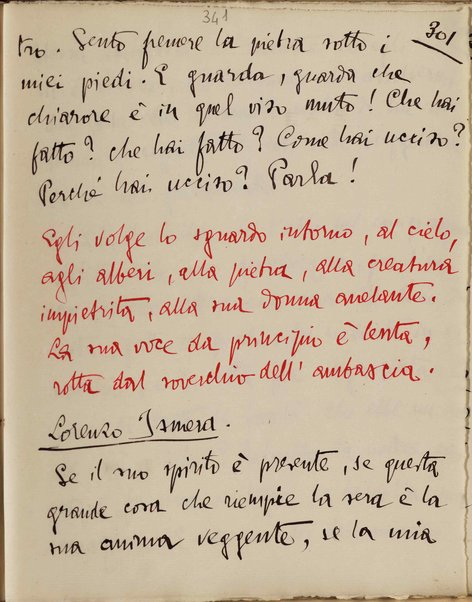 341
301
tro. Sento fremere la pietra sotto i
miei piedi. E guarda, guarda che
chiarore è in quel viso muto! Che hai
fatto? che hai fatto? Come hai ucciso?
Perché hai ucciso? Parla!
Egli volge lo sguardo intorno, al cielo,
agli alberi, alla pietra, alla creatura
impietrita, alla sua donna anelante.
La sua voce da principio è lenta,
rotta dal soverchio dell'ambascia.
Lorenzo Ismera.
Se il suo spirito è presente, se questa
grande cosa che riempie la sera è la
sua anima veggente, se la mia